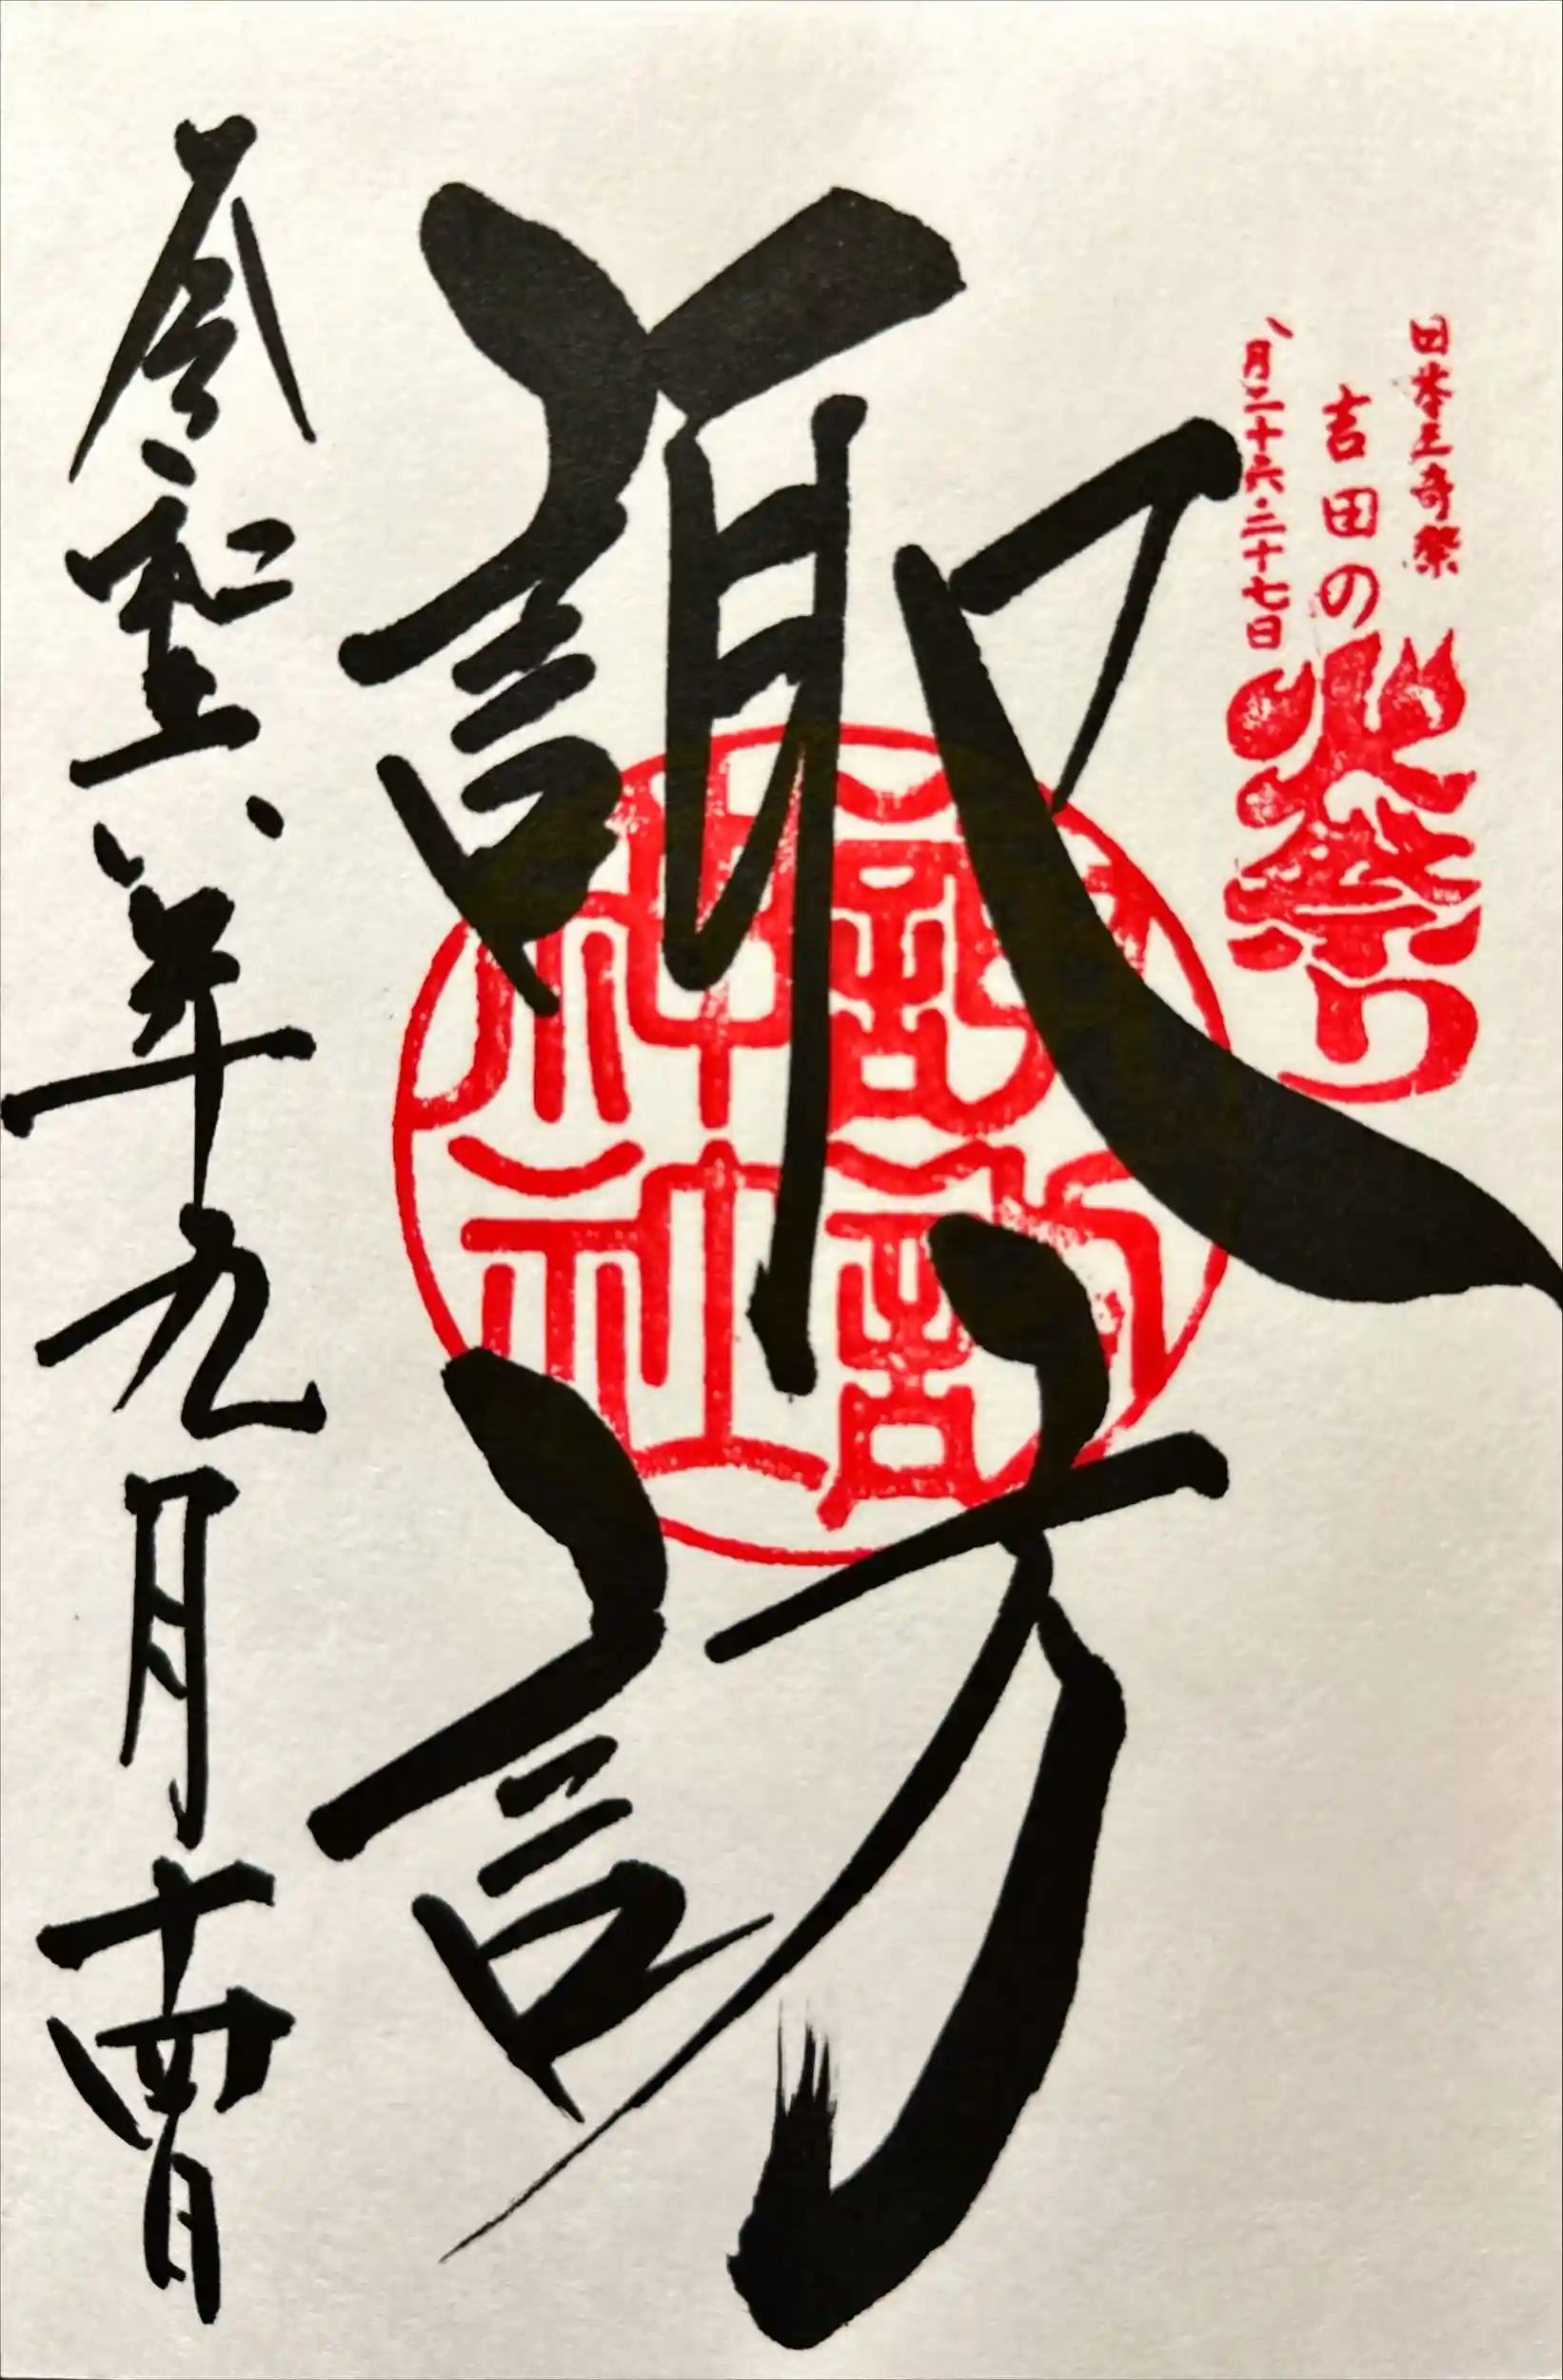 日本三奇祭
吉田の
火祭り
八月二十六・二十七日
諏訪
諏訪神社
令和六年九月十四日